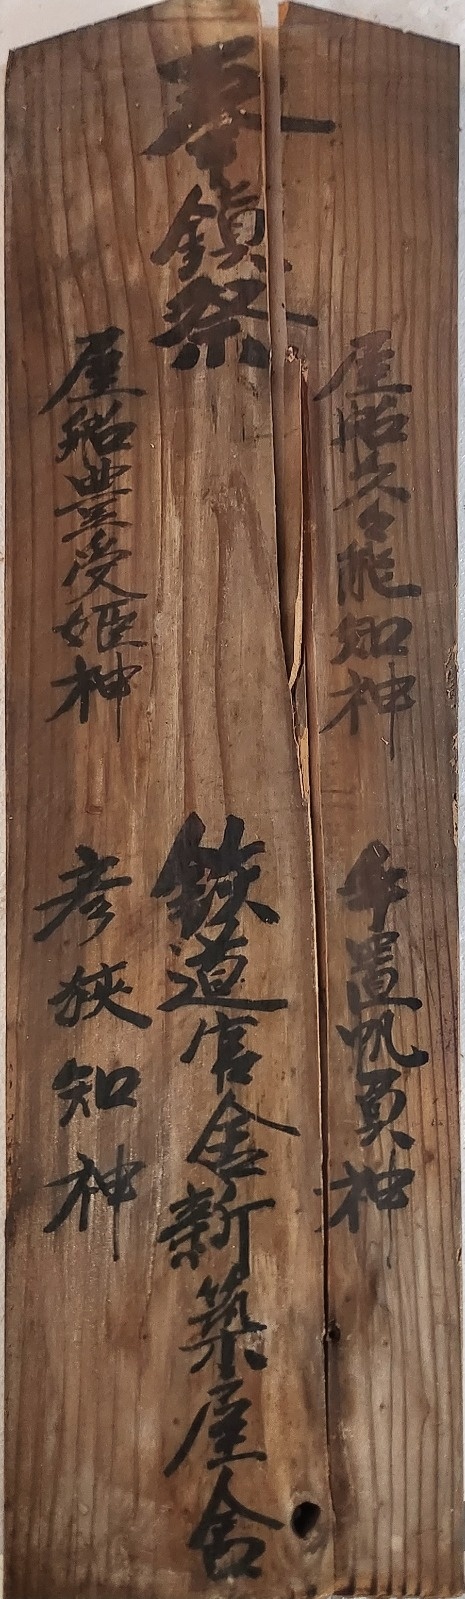 奉鎮祭
屋船久々能知神
手置帆負神
鉄道官舎新築屋舎
屋船豊受姫神
彦狭知神